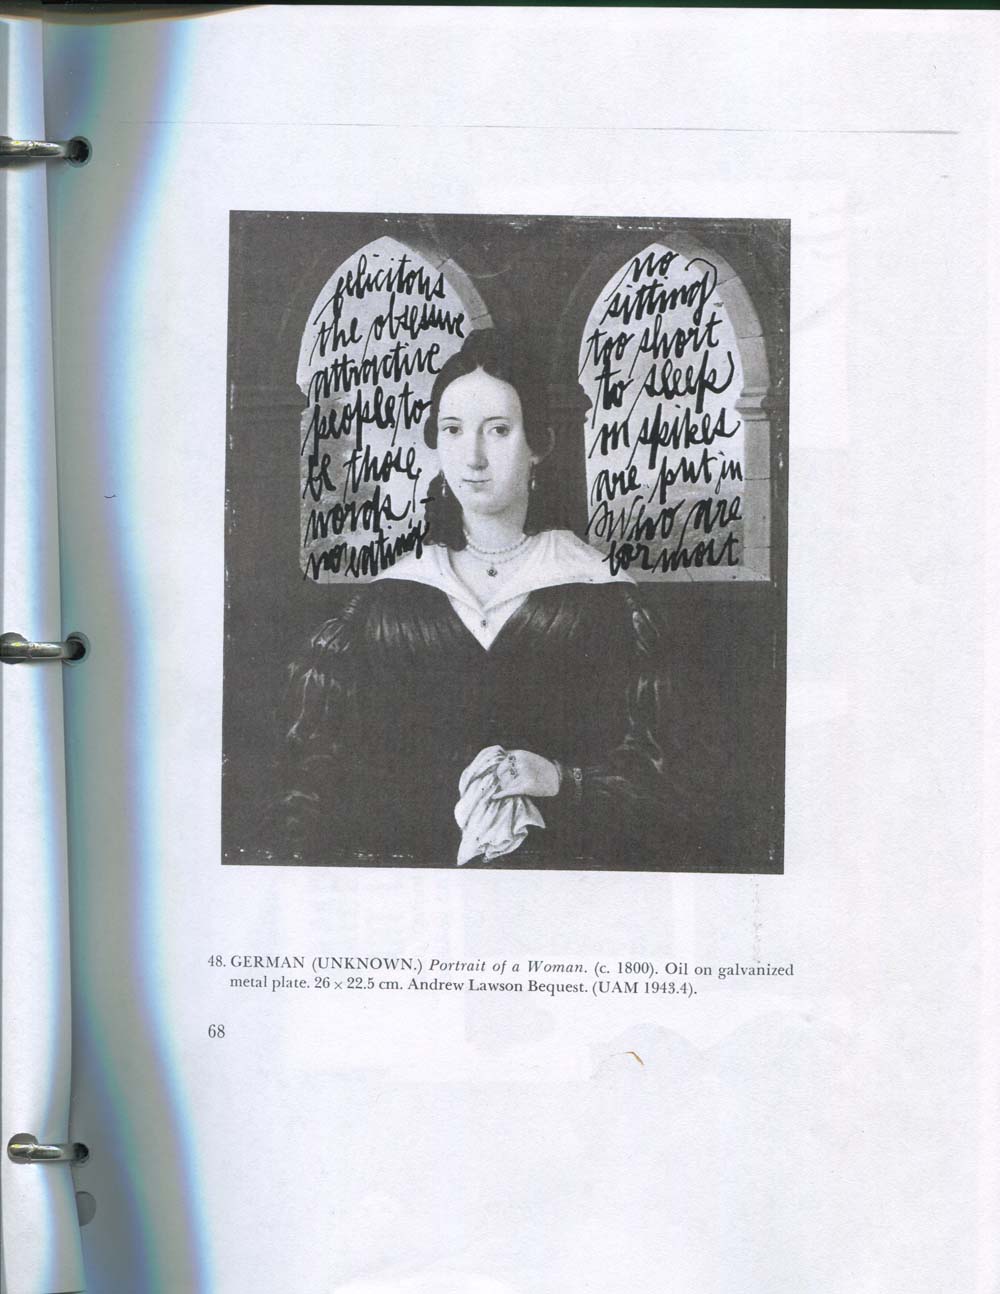 felicitous
the obsessive
attractive
people to
be those
words -
no eating
no
sitting
too short
to sleep
on spikes
are put in
Who are
for most
48. GERMAN (UNKNOWN.) Portrait of a Woman. (c. 1800). Oil on galvanized
metal plate. 26 × 22.5 cm. Andrew Lawson Bequest. (UAM 1943.4).
68